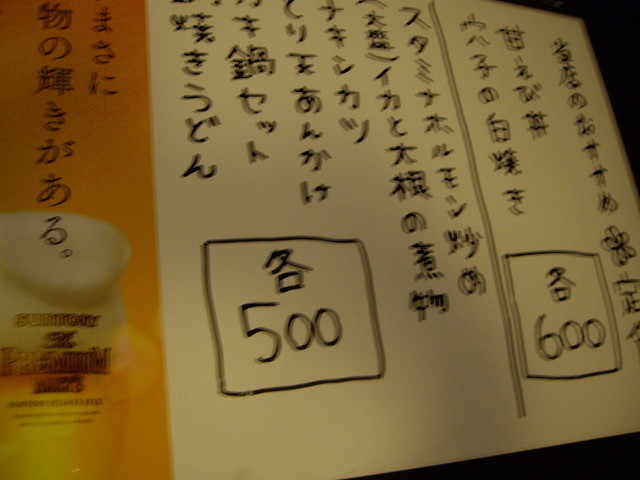 当店のおすすめ
甘えび丼
穴子の白焼き
各
600
スタミナホルモン炒め
イカと大根の煮物
チキンカツ
とり天あんかけ
カキ鍋セット
焼きうどん
各
500
まさに
物の輝きがある。
SUNTORY
THE
PREMIUM
MALT'S